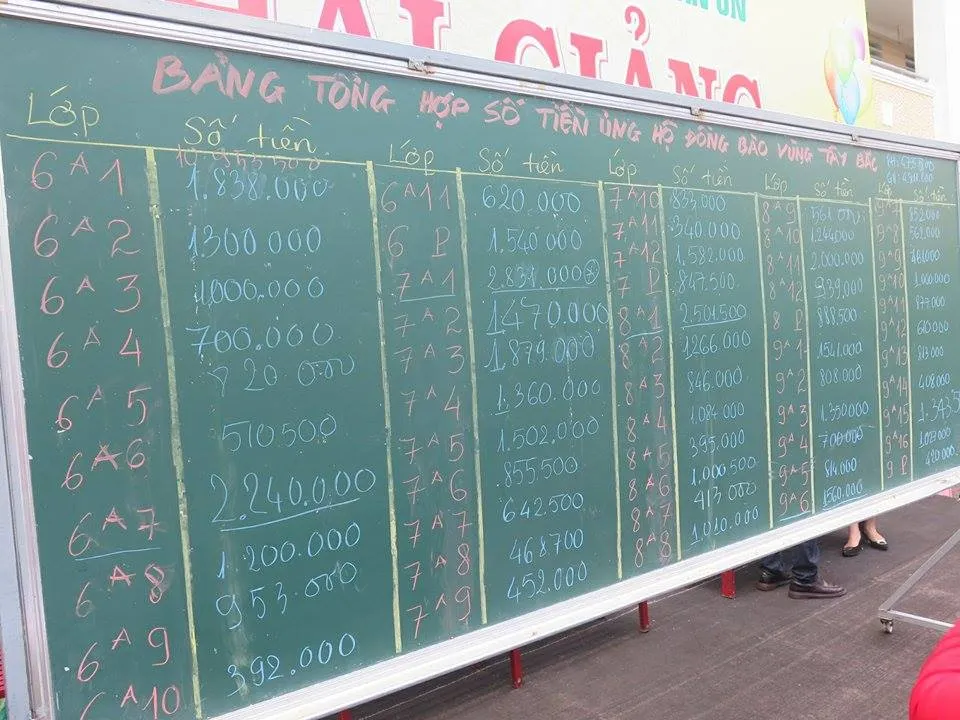 ẢI GIẢNG
BẢNG TỔNG HỢP SỐ TIỀN ỦNG HỘ ĐỒNG BÀO VÙNG TÂY BẮC
Lớp Số tiền
6A1 1.838.000
6A2 1300.000
6A3 1.000.000
6A4 700.000
6A5 820.000
6A6 510.500
6A7 2.240.000
6A8 1.200.000
6A9 953.000
6A10 392.000
Lớp Số tiền
6A11 620.000
6 P 1.540.000
7A1 2.834.000
7A2 1.470.000
7A3 1.879.000
7A4 1.360.000
7A5 1.502.000
7A6 855.500
7A7 642.500
7A8 468700
7A9 452.000
Lớp Số tiền
7A10 833.000
7A11 340.000
7A12 1.582.000
7 P 847.500
8A1 2.504.500
8A2 1266.000
8A3 846.000
8A4 1.084.000
8A5 395.000
8A6 1.000.500
8A7 413.000
8A8 1.010.000
Lớp Số tiền
8A9 561.000
8A10 1.264.000
8A11 2.000.000
8A12 939.000
8 P 888.500
9A1 1541.000
9A2 808.000
9A3 1.350.000
9A4 700.000
9A5 814.000
9A6 1560.000
Lớp Số tiền
9A7
9A8 562.000
9A9
9A10 1.000.000
9A11 877.000
9A12 610.000
9A13 813.000
9A14 408.000
9A15 1.343.5
9A16
9 P 420.000